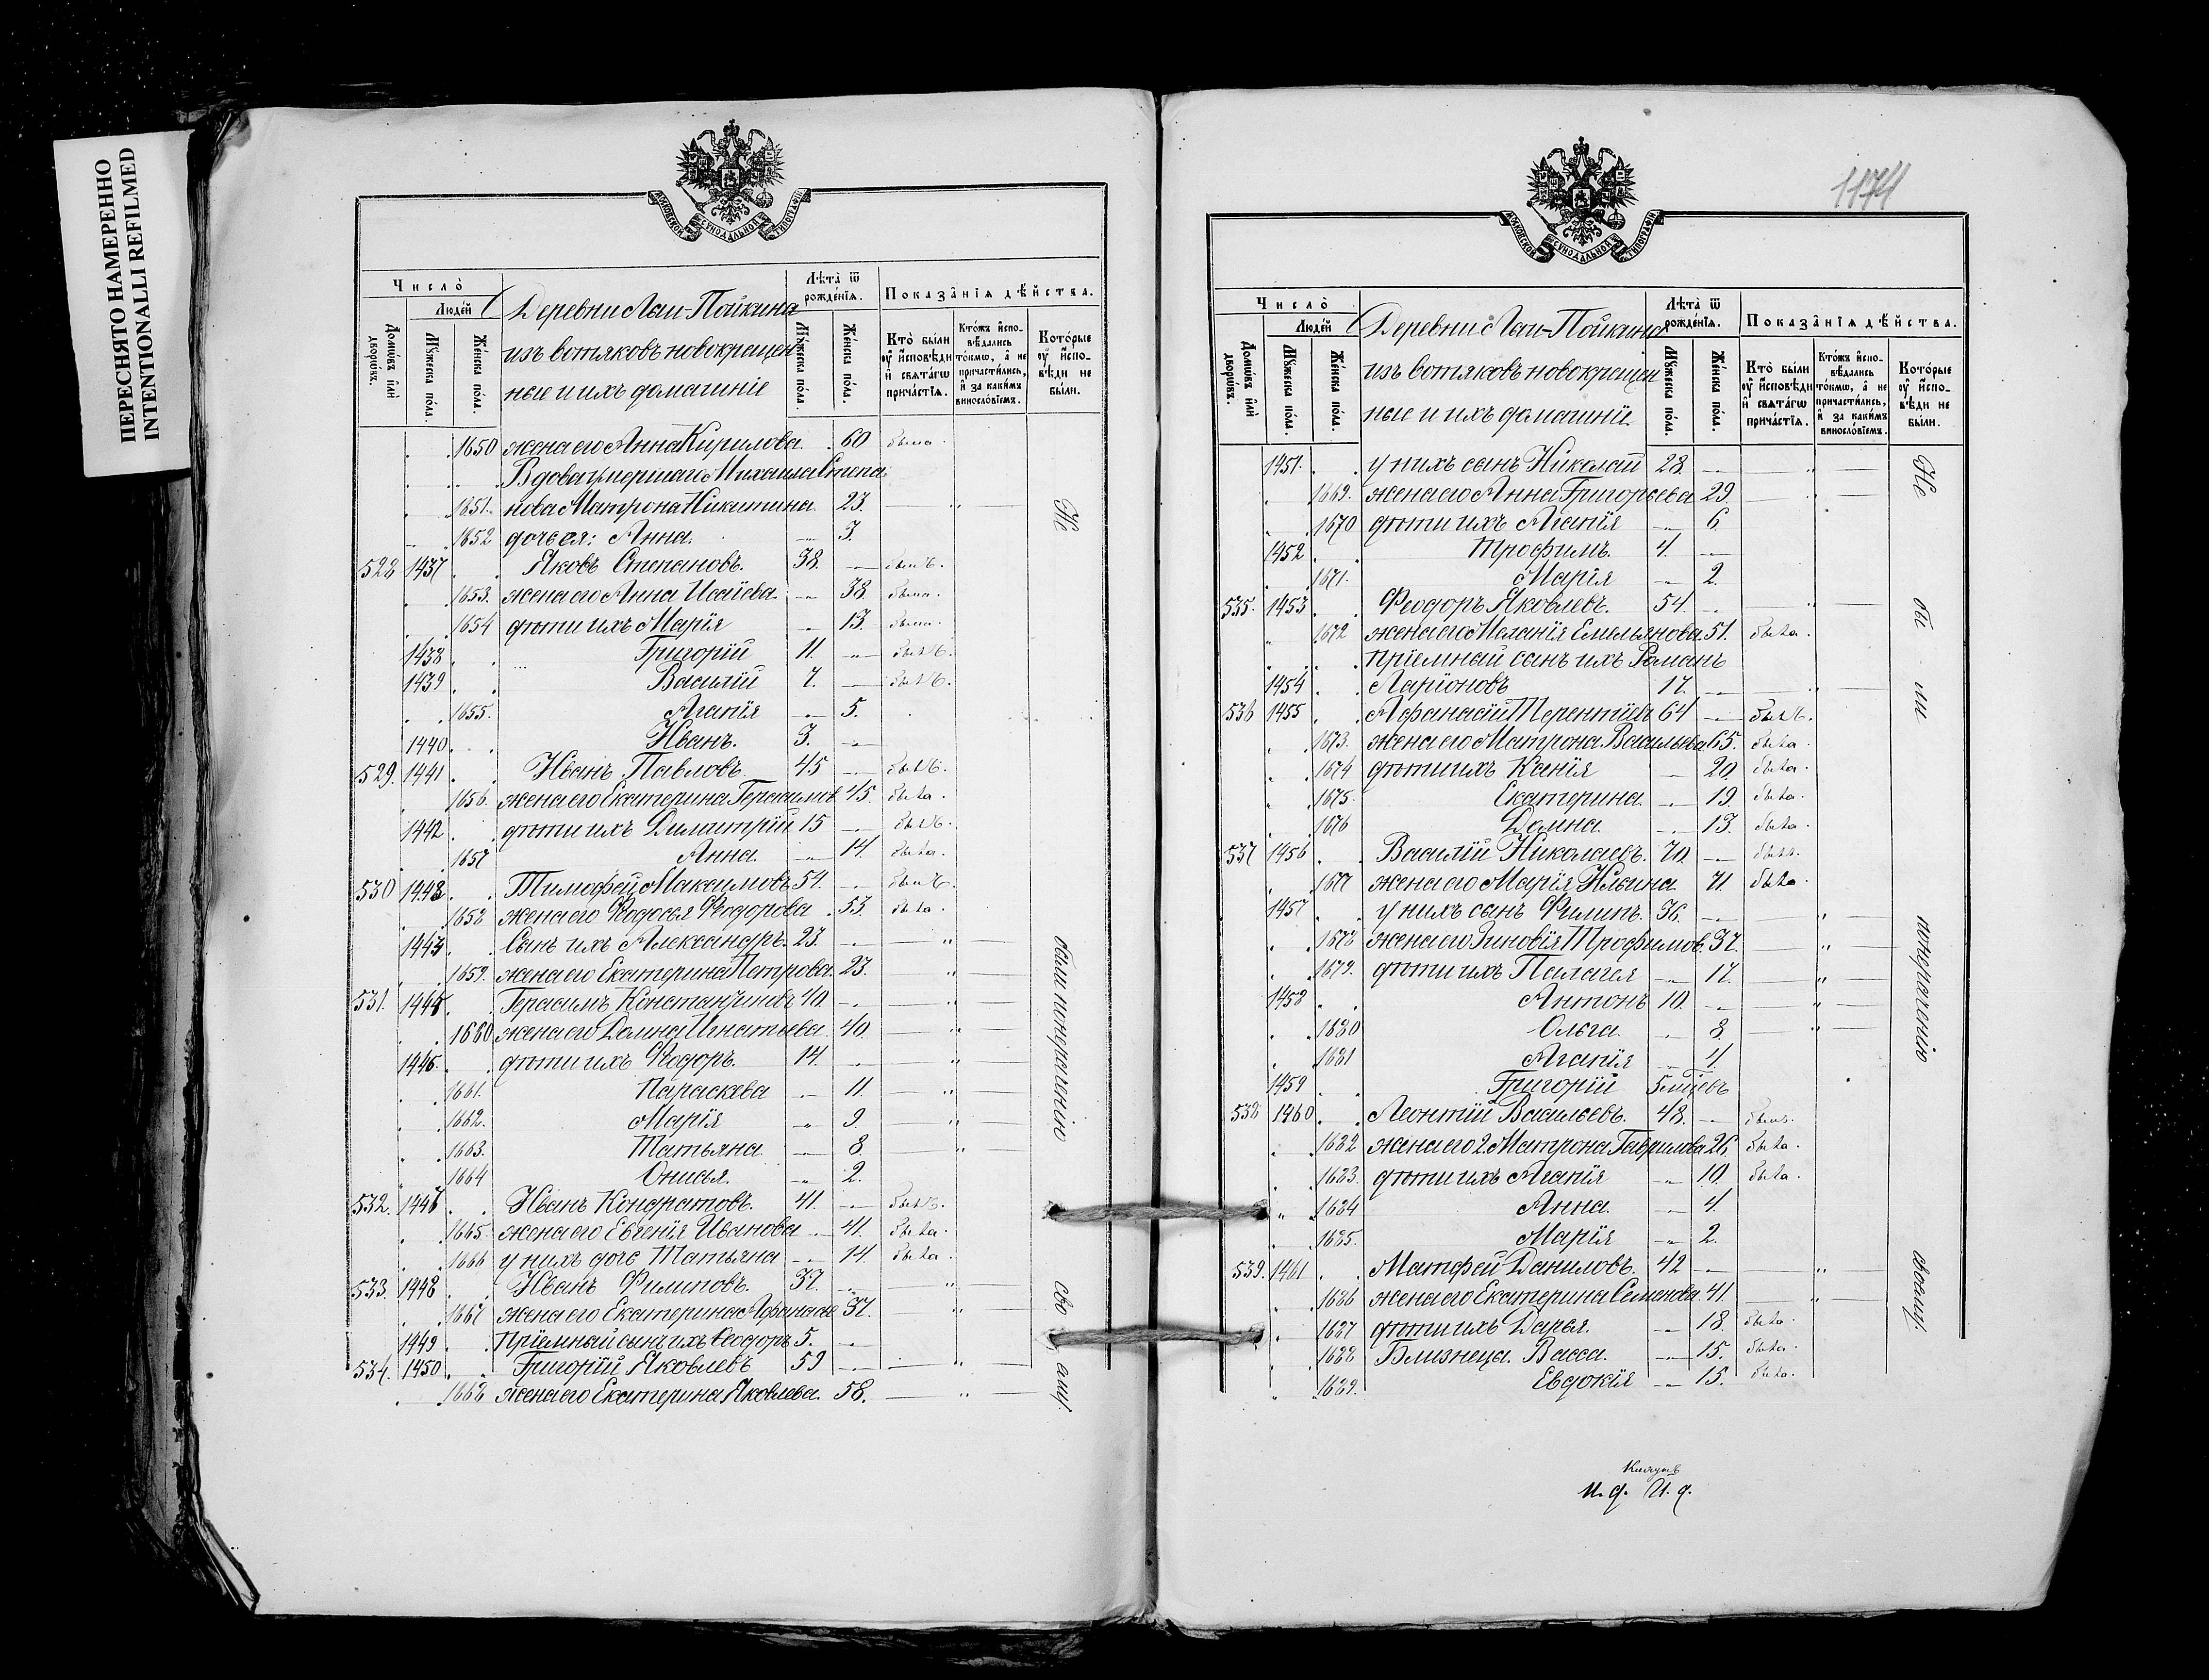 ПЕРЕСНЯТО НАМЕРЕННО
INTENTIONALLI REFILMED
МОСКОВСКОЙ СѴНОДАЛЬНОЙ ТИПОГРАФІИ
Число̀
Людéй
Домѡ́въ и҆лѝ дворѡ́въ.
Мꙋ́жеска по́ла.
Же́нска по́ла.
Деревни Лып-Пойкина
изъ вотяковъ новокрещен
ные и ихъ домашніе
Лѣта̀ ѿ рожде́нїѧ.
Мꙋ́жеска по́ла.
Же́нска по́ла.
Показа̂нїѧ дѣ́йства.
Кто̀ бы́ли оу҆ и҆́сповѣди и҆ свѧта́гѡ прича́стїѧ.
Кто́жъ и҆спо-вѣ́дались то́кмѡ, а҆ не причасти́лись, и҆ за каки́мъ винослóвїемъ.
Кото́рые оу҆ и҆́спо-вѣди не бы́ли.
1650 жена его Анна Кирилова 60 была
Вдова умершаго Михаила Степа
1651. нова Матрона Никитина 23.
1652 дочь ея: Анна 3.
528 1437 Яковъ Степановъ. 38. былъ.
1653. жена его Анна Исаiева 38 была.
1654 дѣти ихъ Марія 13. была.
1438 Григорій 11. былъ.
1439 Василій 7. былъ.
1655. Агапія 5.
1440 Иванъ. 3.
529. 1441 Иванъ Павловъ 45 былъ.
1656. жена его Екатерина Герасимов. 45. была.
1442 дѣти ихъ Димитрій 15 былъ.
1657 Анна. 14. была.
530 1443 Тимофей Максимовъ 54. былъ.
1658 жена его Ѳедосья Ѳедорова 53. была.
1444 Сынъ ихъ Александръ. 23.
1659. жена его Екатерина Петрова. 23.
531. 1445 Герасимъ Константиновъ 40.
1660 жена его Домна Игнатьева. 40.
1446. дѣти ихъ Ѳедоръ. 14.
1661. Параскева 11.
1662. Марія 9.
1663. Татьяна 8.
1664 Онисья. 2.
532. 1447 Иванъ Кондратовъ. 41. былъ.
1665. жена его Евгенія Иванова 41. была.
1666 у нихъ дочь Татьяна 14. была.
533. 1448 Иванъ Филиповъ. 37.
1667 жена его Екатерина Афанась 37.
1449 Пріемный сынъ ихъ Ѳеодоръ 5.
534. 1450 Григорій Яковлевъ 59
1668 жена его Екатерина Яковлева. 58.
Не
были по нераченію
сво
ему.
1174
МОСКОВСКОЙ СѴНОДАЛЬНОЙ ТИПОГРАФІИ
Число̀
Людéй
Домѡ́въ и҆лѝ дворѡ́въ.
Мꙋ́жеска по́ла.
Же́нска по́ла.
Деревни Лып-Пойкина
изъ вотяковъ новокрещен
ные и ихъ домашніи
Лѣта̀ ѿ рожде́нїѧ.
Мꙋ́жеска по́ла.
Же́нска по́ла.
Показа̂нїѧ дѣ́йства.
Кто̀ бы́ли оу҆ и҆́сповѣди и҆ свѧта́гѡ прича́стїѧ.
Кто́жъ и҆спо-вѣ́дались то́кмѡ, а҆ не причасти́лись, и҆ за каки́мъ винослóвїемъ.
Кото́рые оу҆ и҆́спо-вѣди не бы́ли.
1451. у нихъ сынъ Николай 28.
1669. жена его Анна Григорьева 29.
1670 дѣти ихъ Агапія 6.
1452 Трофимъ. 4.
1671. Марія 2.
535. 1453 Ѳеодоръ Яковлевъ. 54.
1672 жена его Меланія Емельянова 51. была.
Пріемный сынъ ихъ Романъ
1454 Ларіоновъ 17.
536 1455 Афанасій Терентіевъ 64 былъ.
1673. жена его Матрона Васильева 65. была.
1674 дѣти ихъ Ксенія 20. была.
1675. Екатерина. 19. была.
1676 Домна. 13. была.
537 1456 Василій Николаевъ. 70. былъ.
1677 жена его Марія Ильина. 71 была.
1457 у нихъ сынъ Филипъ. 36.
1678 жена его Зиновія Трофимов. 37.
1679. дѣти ихъ Пелагея 17.
1458 Антонъ 10.
1680 Ольга. 8.
1681 Агапія 4.
1459 Григорій 5 мѣсцевъ
538 1460 Леонтій Васильевъ. 48. былъ.
1682 жена его 2. Матрона Гаврилова 26. была.
1683. дѣти ихъ Агапія 10. была.
1684 Анна. 4.
1685. Марія 2.
539. 1461 Матфей Даниловъ. 42
1686 жена его Екатерина Семенова. 41
1687 дѣти ихъ Дарья. 18. была.
1688 Близнецы. Васса. 15. была.
1689. Евдокія 15. была.
Не
бы
ли
по нераченію
своему.